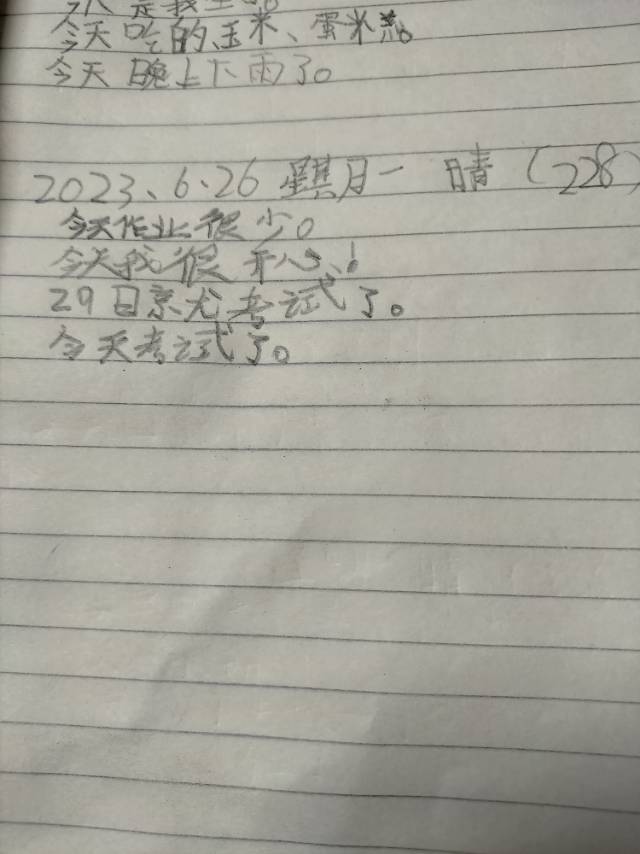 今天吃的玉米、蛋米羔。
今天晚上下雨了。
2023、6.26 星期一 晴(228)
今天作业很少。
今天我很开心、!
29日京尤考试了。
今天考试了。